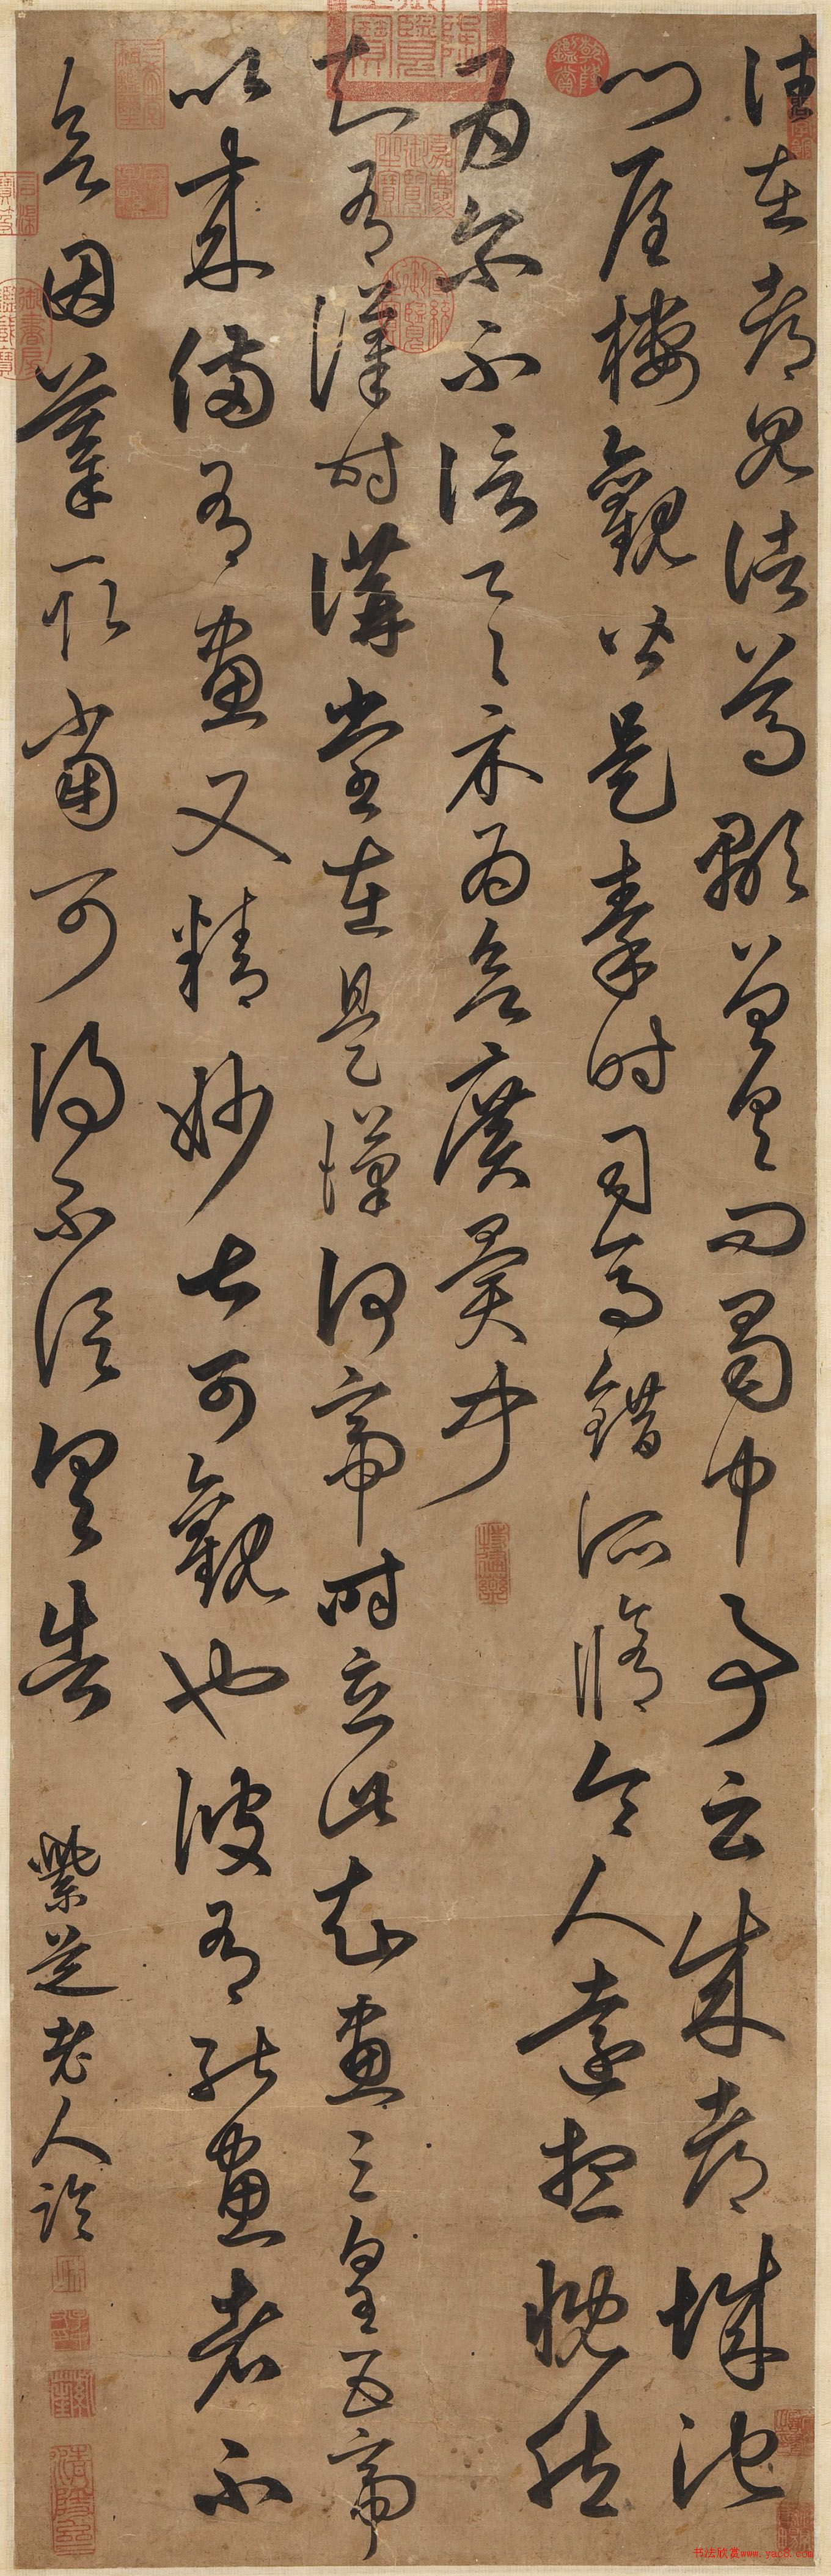 往在都見諸葛顒曾具問蜀中事云成都城池
門屋樓觀皆是秦時司馬錯所脩令人遠想慨然
為爾不信一一示為欲廣異聞
知有漢時講堂在是漢何帝時立此知畫三皇五帝
以來備有畫又精妙甚可觀也彼有能畫者不
欲因摹取當可得不信具告
紫芝老人臨
书法欣赏www.yac8.com